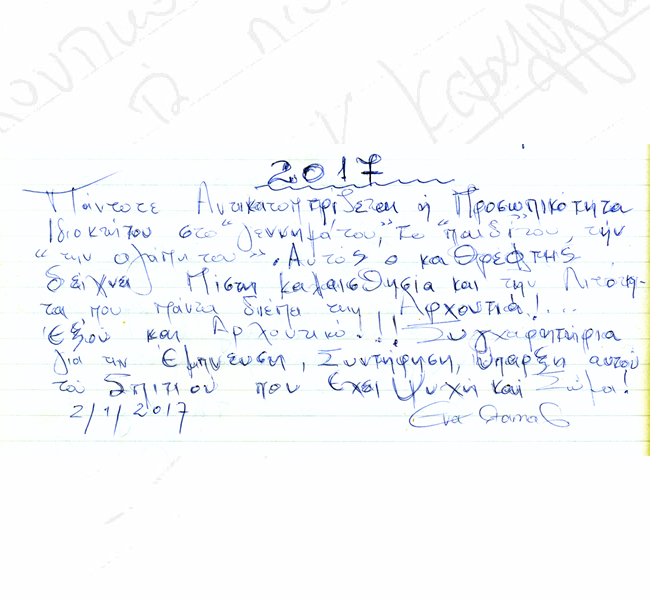 2017
Πάντοτε Αντικατοπτρίζεται ή Προσωπικότητα
Ιδιοκτήτου στο "γεννημά του", το "παιδί" του, την
"την αγάπη του". Αυτός ο καθρέφτης
δείχνει Πίστη Καλαισθησία και την Λιτότη-
τα που πάντα διέπει την Αρχοντιά!...
Εξού και Αρχοντικό!!! Συγχαρητήρια
για την Εμπνευση, Συντήρηση, Υπαρξη αυτού
του Σπιτιού που Εχει Ψυχή και Σώμα!
2/1/2017